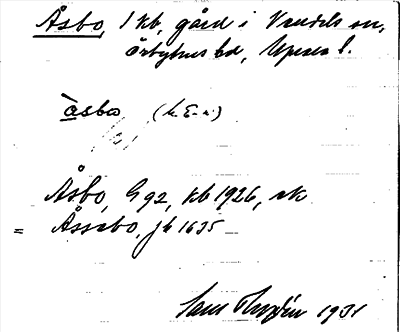 Åsbo, 1 kb, gård i Vendels sn,
Örbyhus hd, Upsala l.
àsbo
Åsbo, G 92, kb 1926, ek
= Åssebo, jb 1635
1931